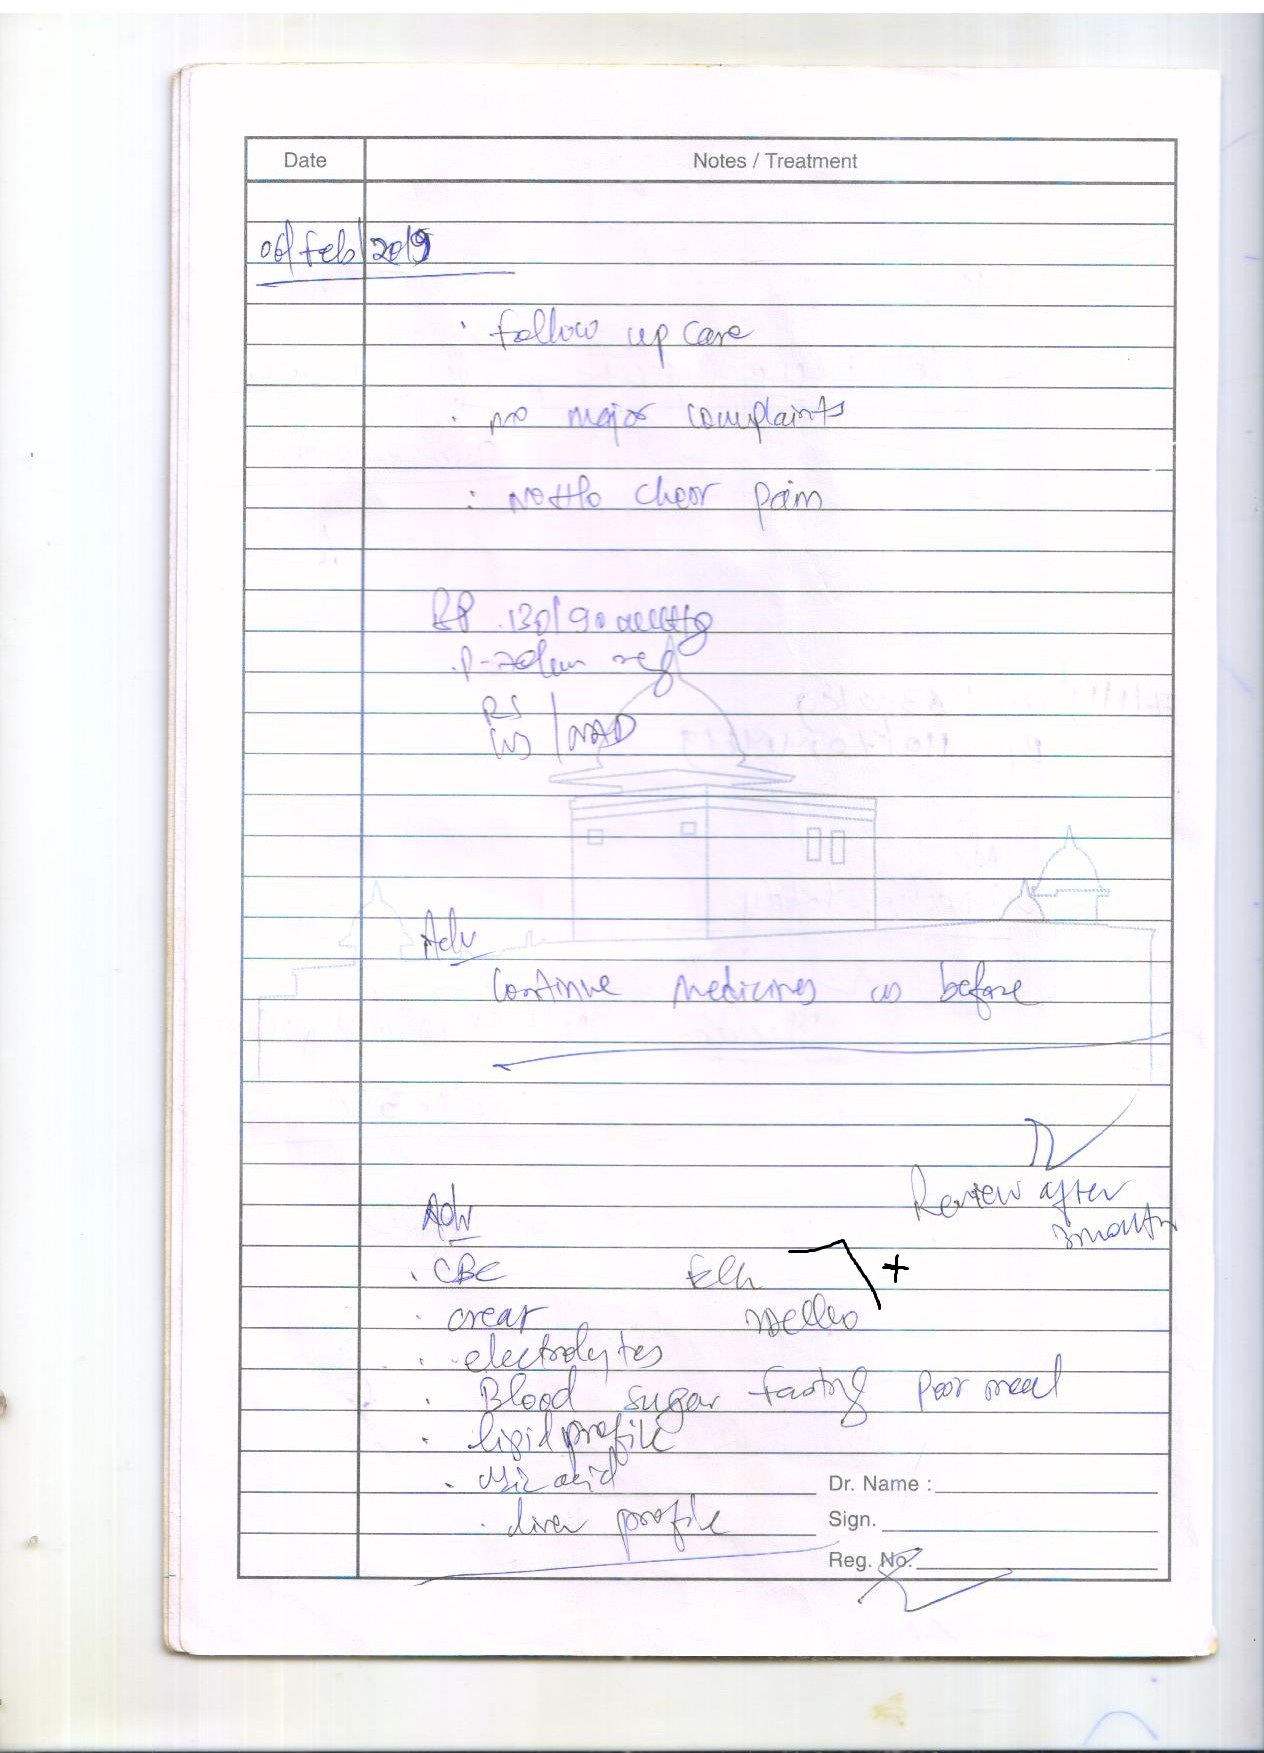 Date Notes / Treatment
06/Feb/2019
· follow up care
· no major complaints
: no H/o chest pain
BP . 130/90 mmHg
. P- reg
RS
CVS / NAD
Adv
Continue Medicines as before
Review after
3 months
Adv
· CBC +
· creat
· electrolytes
· Blood sugar fasting post meal
· lipid profile
· uric acid
· liver profile
Dr. Name :
Sign.
Reg. No.